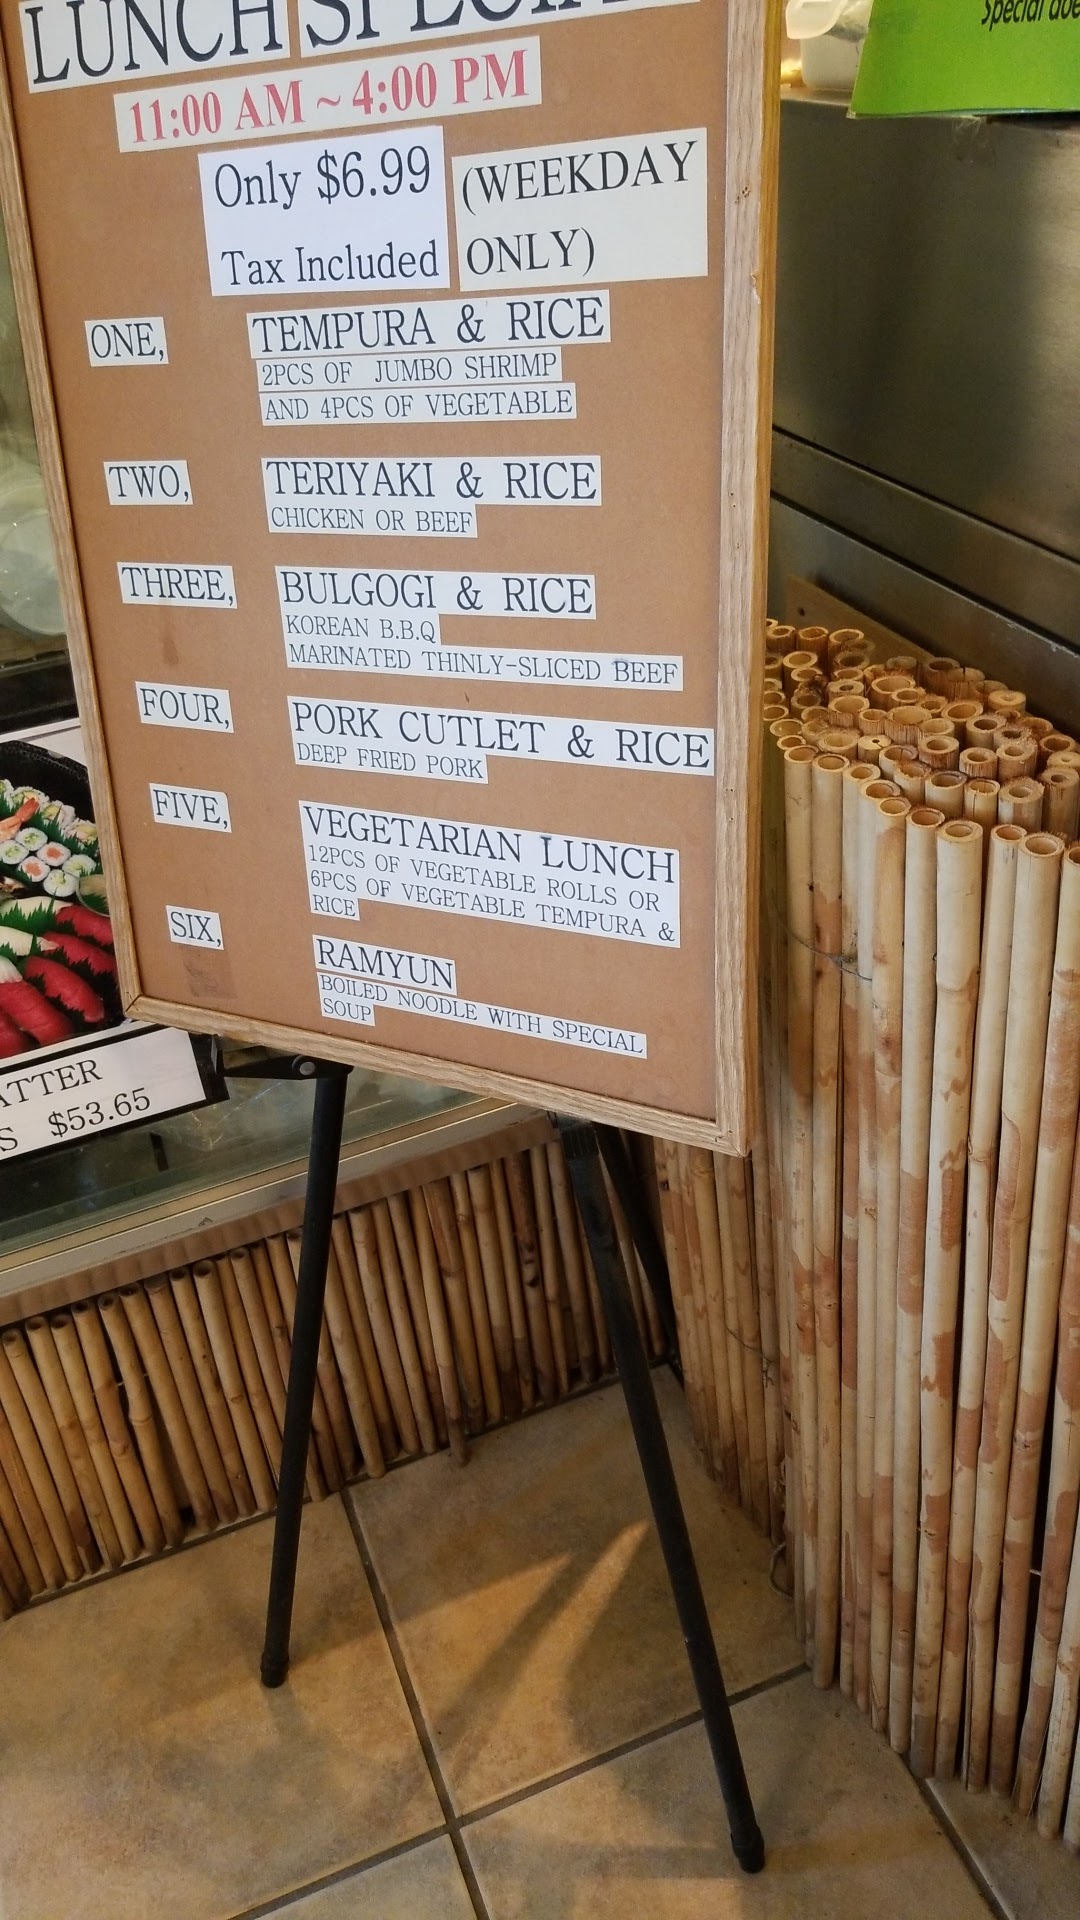 LUNCH SPECIAL
11:00 AM ~ 4:00 PM
Only $6.99
Tax Included
(WEEKDAY
ONLY)
ONE, TEMPURA & RICE
2PCS OF JUMBO SHRIMP
AND 4PCS OF VEGETABLE
TWO, TERIYAKI & RICE
CHICKEN OR BEEF
THREE, BULGOGI & RICE
KOREAN B.B.Q
MARINATED THINLY-SLICED BEEF
FOUR, PORK CUTLET & RICE
DEEP FRIED PORK
FIVE, VEGETARIAN LUNCH
12PCS OF VEGETABLE ROLLS OR
6PCS OF VEGETABLE TEMPURA &
RICE
SIX, RAMYUN
BOILED NOODLE WITH SPECIAL
SOUP
ATTER
S $53.65
Special